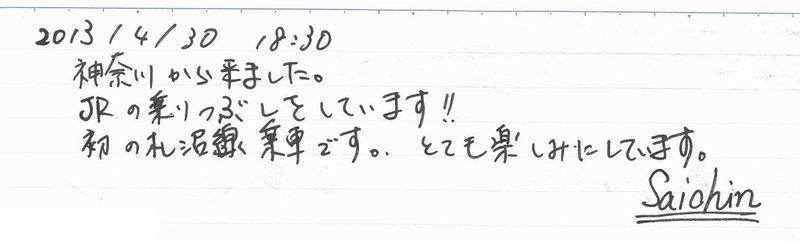 2013/4/30 18:30
神奈川から来ました。
JRの乗りつぶしをしています!!
初の札沼線乗車です。. とても楽しみにしています。
Saichin